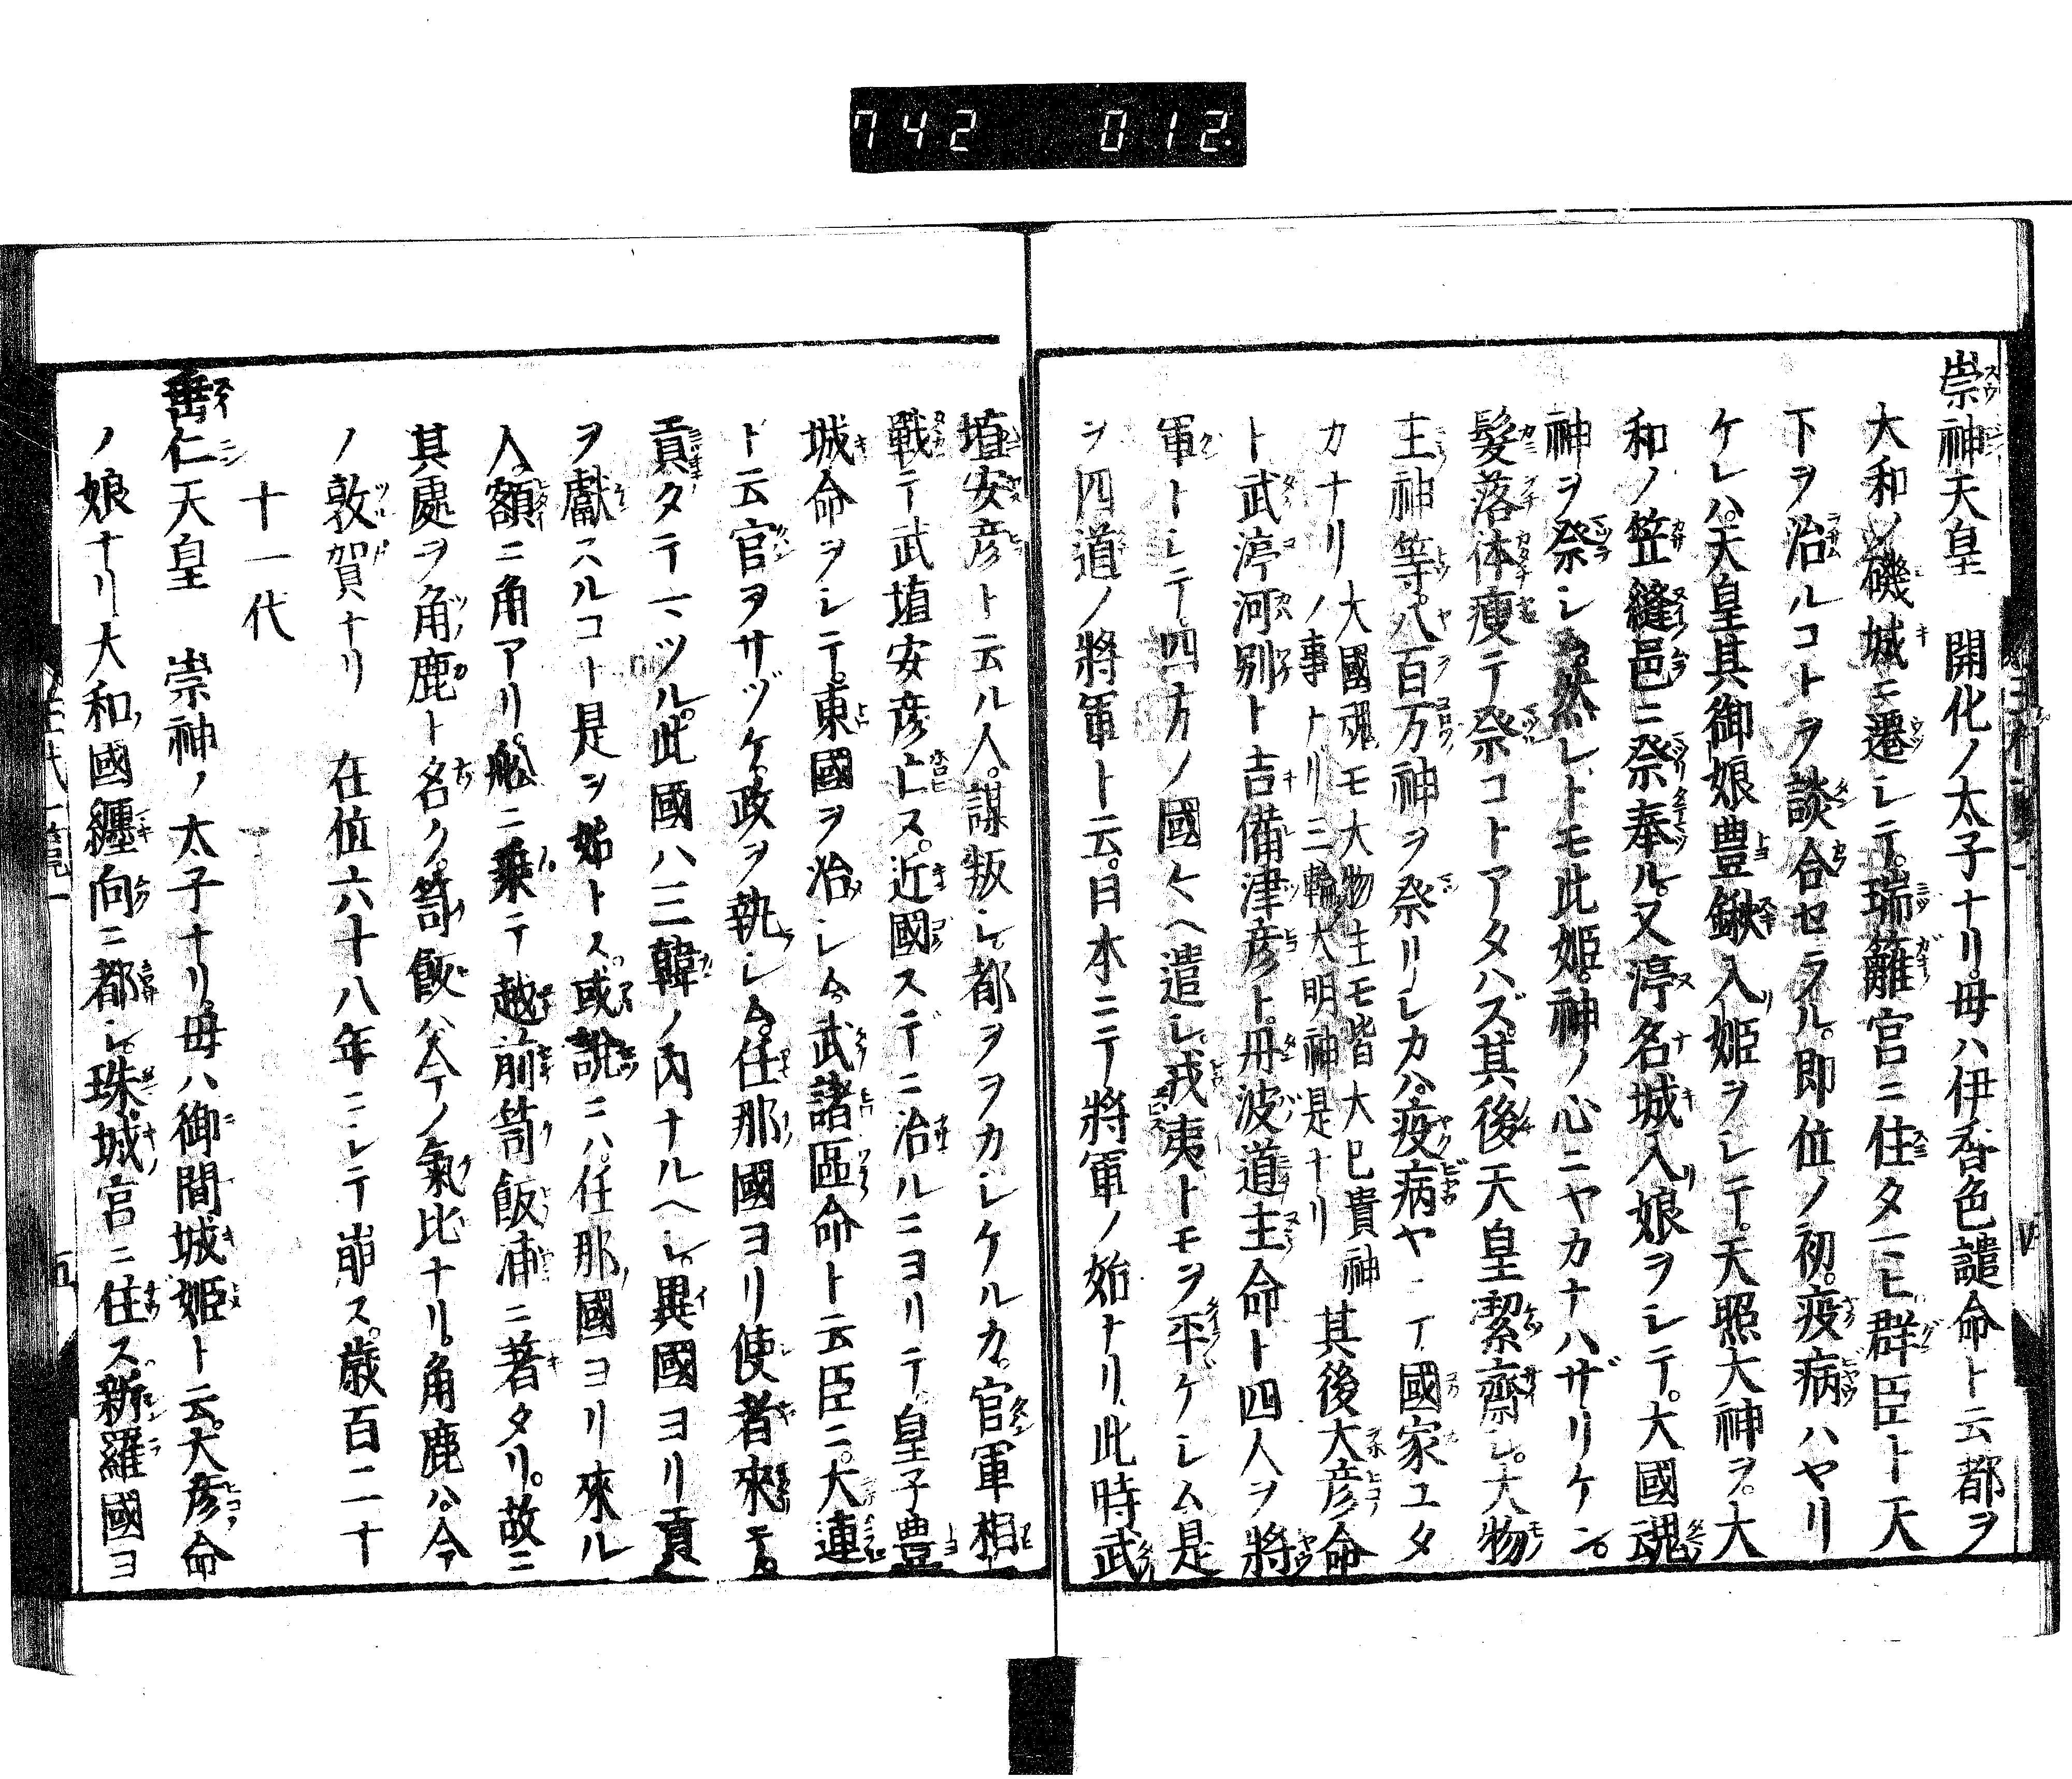 742 012
崇神天皇 開化ノ太子ナリ。母ハ伊香色謎命ト云都ヲ
大和ノ磯城ニ遷シテ。瑞籬宮ニ住タマヒ群臣ト天
下ヲ治ルコトヲ談合セラル。即位ノ初。疫病ハヤリ
ケレハ。天皇其御娘豊鍬入姫ヲシテ。天照大神ヲ。大
和ノ笠縫邑ニ祭奉ル。又渟名城入娘ヲシテ。大國魂
神ヲ祭シム。然レトモ此姫。神ノ心ニヤカナハザリケン。
髮落体瘦テ祭コトアタハズ。其後天皇潔齋シ。大物
主神等。八百万神ヲ祭リシカハ。疫病ヤミテ國家ユタ
カナリ 大國魂モ大物主モ皆大已貴神
ノ事トリ三輪大明神是ナリ 其後大彦命
ト武渟河別ト吉備津彦ト。丹波道主命ト四人ヲ將
軍トシテ四方ノ國々ヘ遣シ。戎夷トモヲ平ケシム是
ヲ四道ノ將軍ト云。日本ニテ將軍ノ始ナリ。此時武
埴安彦ト云ル人。謀叛シ都ヲヲカシケルカ。官軍相
戰テ武埴安彦亡ス。近國スデニ治ルニヨリテ皇子豊
城命ヲシテ。東國ヲ治シム。武諸隅命ト云臣ニ。大連
ト云官ヲサヅケ。政ヲ執シム。任那國ヨリ使者來テ。
貢タテマツル。此國ハ三韓ノ内ナルヘシ。異國ヨリ貢
ヲ獻スルコト是ヲ始トス。或說ニハ。任那國ヨリ來ル
人。額ニ角アリ。舩ニ乘テ越前笥飯浦ニ著タリ。故ニ
其處ヲ角鹿ト名ク。笥飯ハ今ノ氣比ナリ。角鹿ハ。今
ノ敦賀ナリ 在位六十八年ニシテ崩ス。歲百二十
十一代
垂仁天皇 崇神ノ太子ナリ。母ハ御間城姫ト云。大彦命
ノ娘ナリ大和國纏向ニ都シ。珠城宮ニ住ス新羅國ヨ